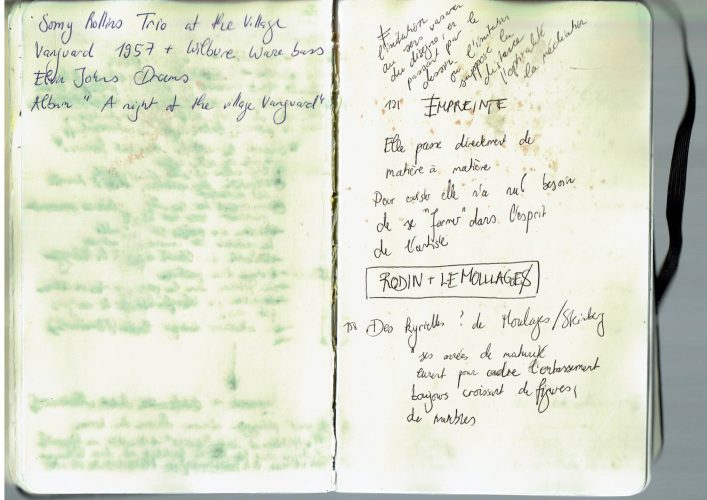 Sonny Rollins Trio at the Village
Vanguard 1957 + Wilbure Ware bass
Elvin Johns Drums
Album "A night at the village Vanguard"
L'imitation
au sens vasarien
du disegno, en le
passant par le
dessin
ou l'imitation
suppose la
distance
l'opticalité
la médiation
121 EMPREINTE
Elle passe directement de
matière à matière
Pour exister elle n'a nul besoin
de se "former" dans l'esprit
de l'artiste
RODIN + LE MOULAGES
Des Kyrielles ? de Moulages/Steinberg
"ses années de maturité
eurent pour cadre l'entassement
toujours croissant de figures,
de marbres